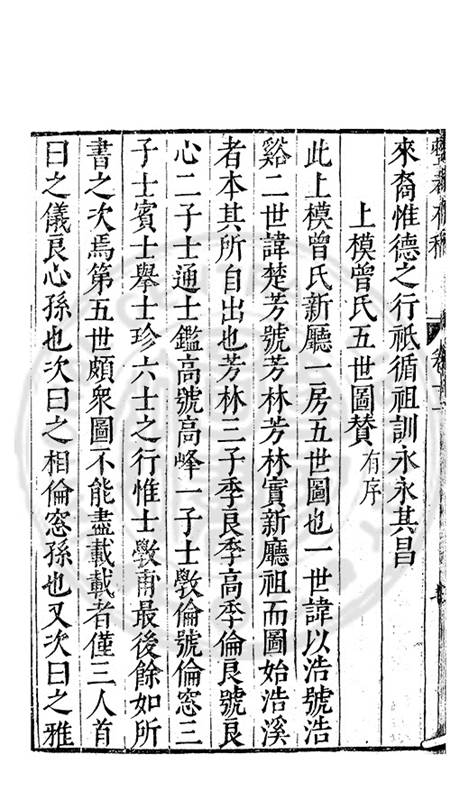 來裔惟德之行祇循祖訓永永其昌
上模曾氏五世圖贊有序
此上模曾氏新廳一房五世圖也一世諱以浩號浩
谿二世諱楚芳號芳林芳林實新廳祖而圖始浩溪
者本其所自出也芳林三子季良季高季倫良號良
心二子士通士鑑高號高峰一子士斆倫號倫窓三
子士賓士舉士珍六士之行惟士斆甫最後餘如所
書之次焉第五世頗衆圖不能盡載載者僅三人首
曰之儀良心孫也次曰之相倫窓孫也又次曰之雅